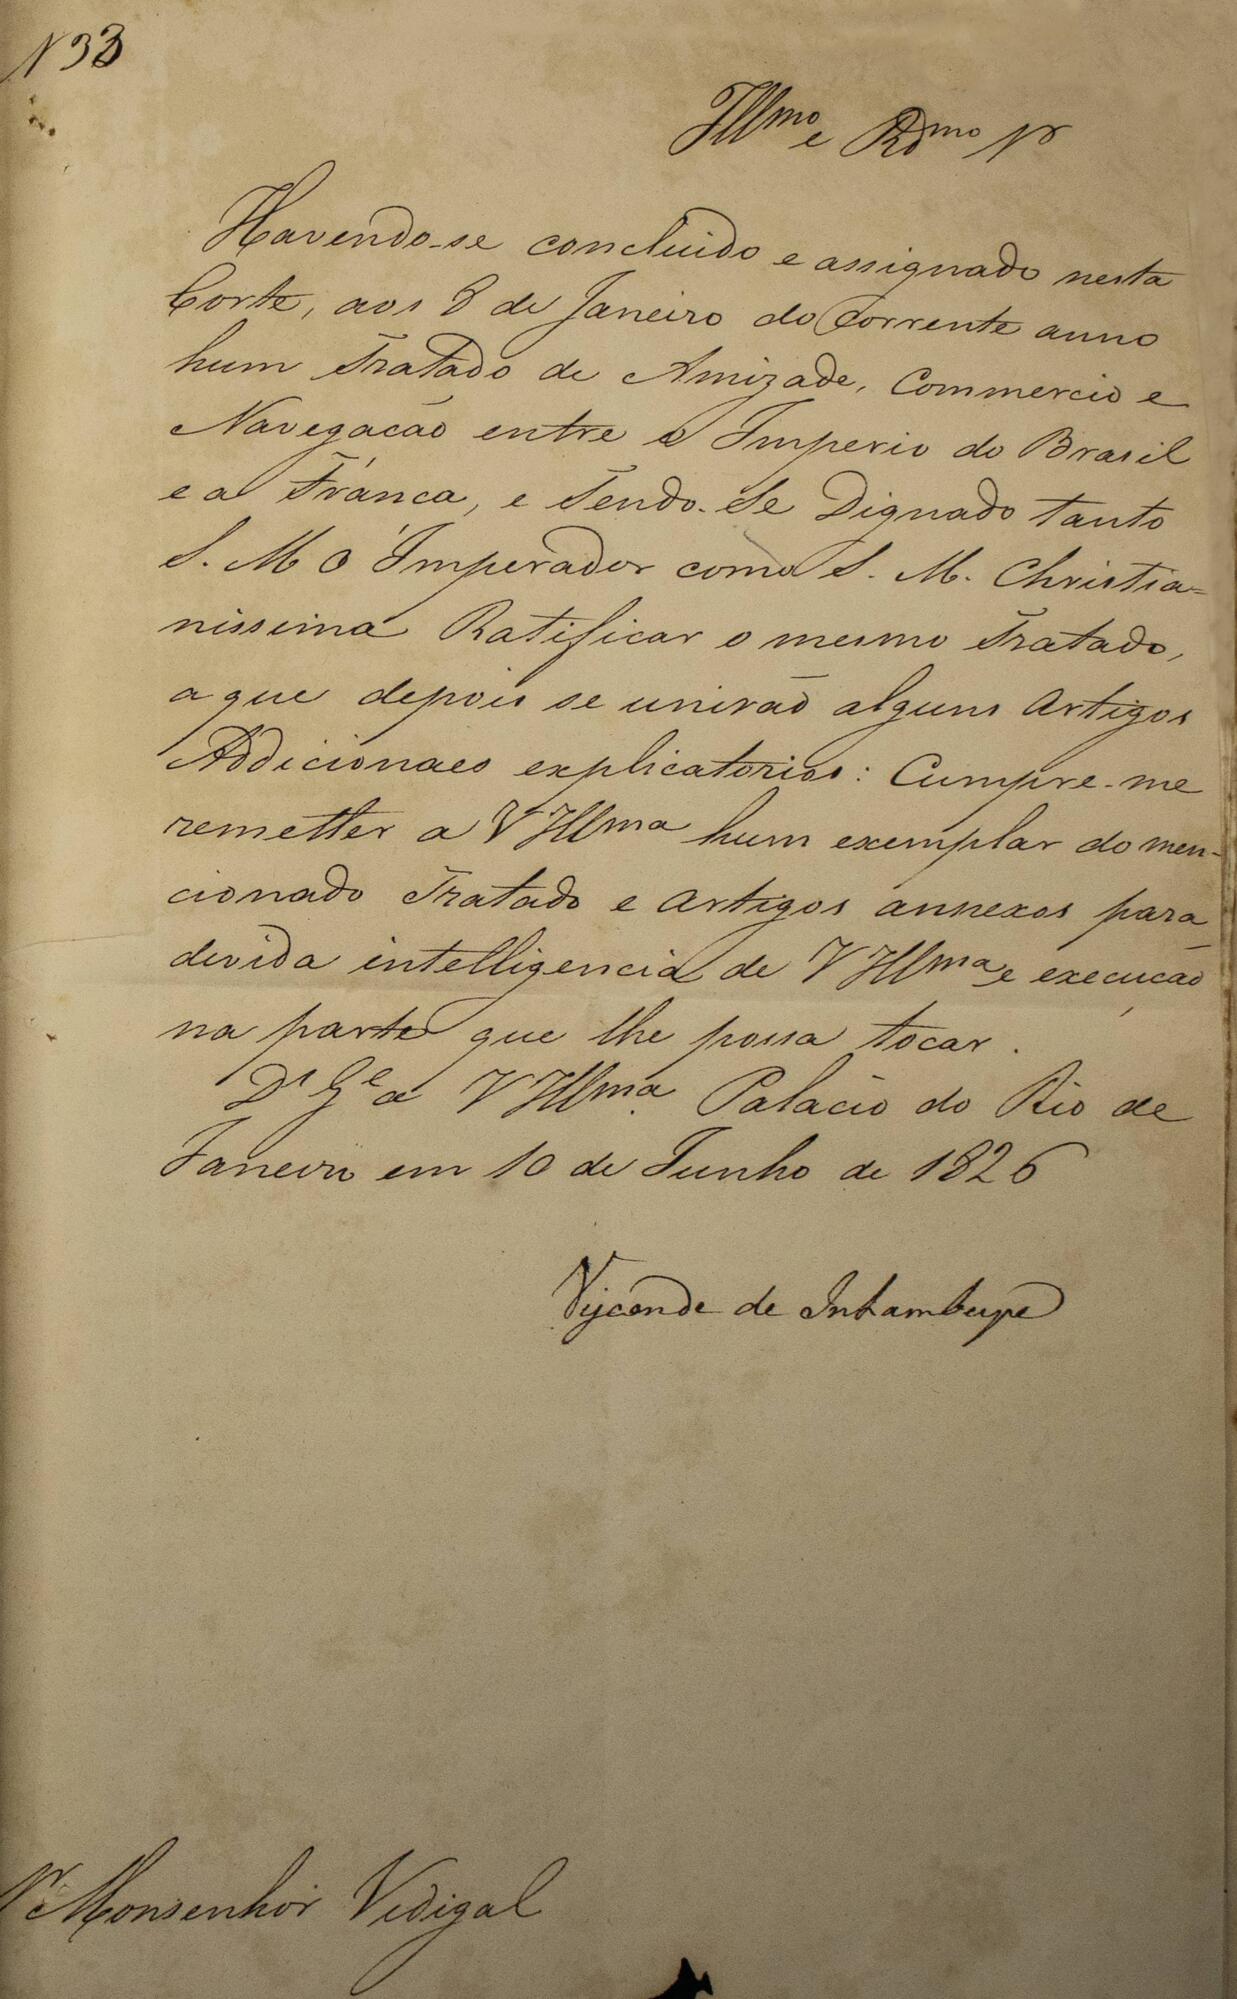 N 33
Illmo e Rdmo Sr
Havendo-se concluido e assignado nesta
Corte, aos 8 de Janeiro do Corrente anno
hum Tratado de Amizade, Commercio e
Navegacão entre o Imperio do Brasil
e a França, e Tendo-Se Dignado tanto
S. M. O Imperador como S. M. Christia=
nissima Ratificar o mesmo Tratado,
a que depois se unirão alguns Artigos
Addicionaes explicatorios: Cumpre-me
remetter a V Illma hum exemplar do men-
cionado Tratado e Artigos annexos para
devida intelligencia de V Illma e execução
na parte que lhe possa tocar.
Ds Ge a V Illma. Palacio do Rio de
Janeiro em 10 de Junho de 1826
Visconde de Inhambupe
Sr Monsenhor Vidigal